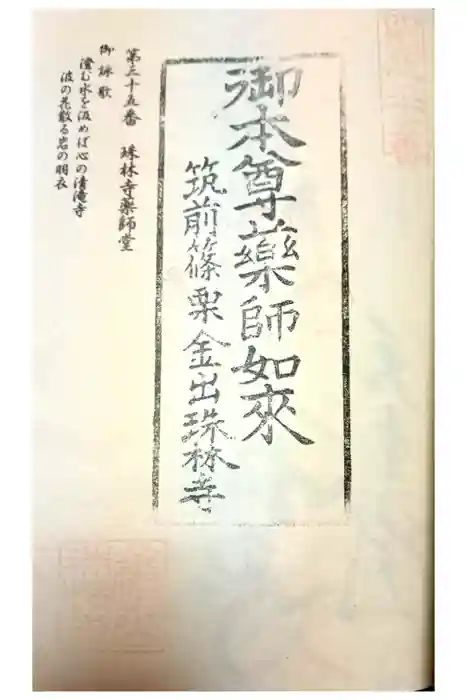 御本尊薬師如來
筑前篠栗金出珠林寺
第三十五番　珠林寺薬師堂
御詠歌
澄む水を汲めば心の清滝寺
波の花散る岩の羽衣